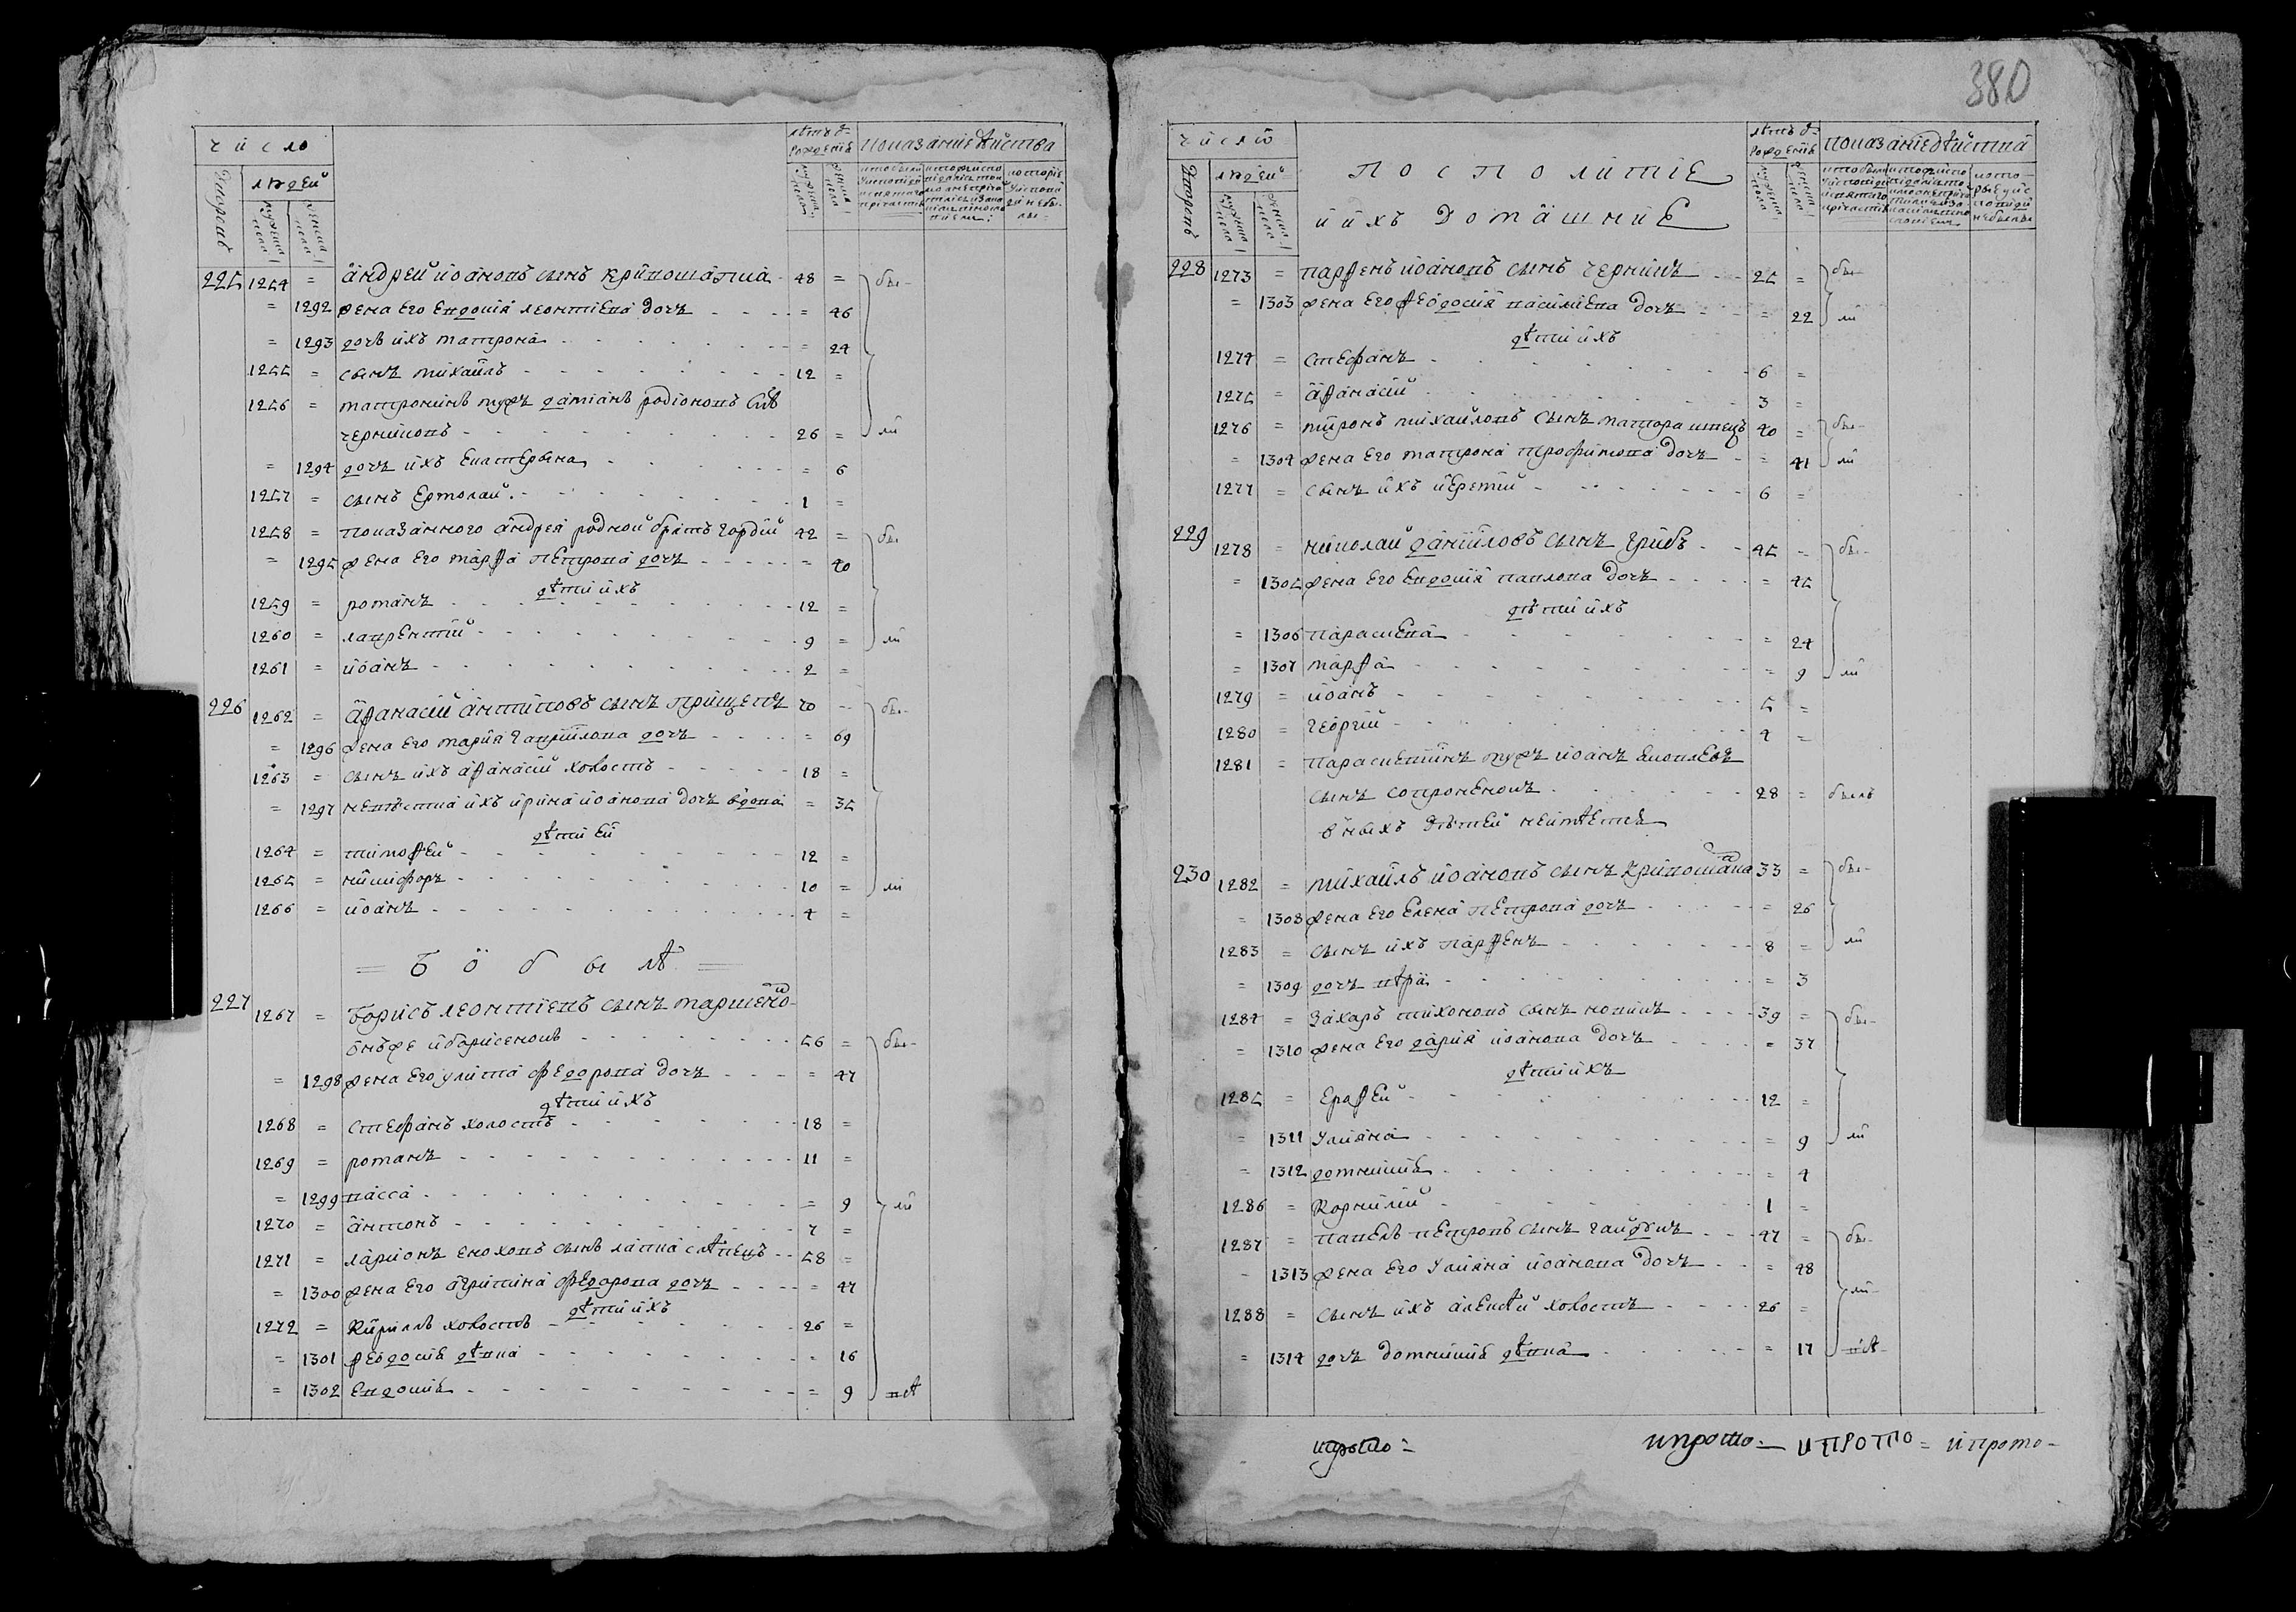 380
число
лѣтъ ѿ рождения
показание дѣйства
дворовъ
людей
мужеска пола
женска пола
225 1254 = андрей иоановъ сынъ кривошапка - 48 = бы-
= 1292 жена его евдокия леонтиева дочь = 46
= 1293 дочь ихъ матрона = 24
1255 = сынъ михаилъ 12 =
1256 = матронинъ мужъ дамианъ родионовъ снъ
черниковъ 26 = ли
= 1294 дочь ихъ екатерина = 6
1257 = сынъ ермолай 1 =
1258 = показанного андрея родной братъ гордий 42 = бы-
= 1295 жена его марѳа петрова дочь = 40
дѣти ихъ
1259 = романъ 12 =
1260 = лаврентий 9 = ли
1261 = иоанъ 2 =
226 1262 = аѳанасий антиповъ сынъ прищепъ 70 = бы-
= 1296 жена его мария гавриилова дочь = 69
1263 = сынъ ихъ аѳанасий холостъ 18 =
= 1297 невѣстка ихъ ирина иоанова дочь вдова = 35
дѣти ей
1264 = тимоѳей 12 =
1265 = никифоръ 10 = ли
1266 = иоанъ 4 =
= бобылѣ =
227 1267 = борисъ леонтиевъ сынъ маршенко
онъже и борисенокъ 56 = бы-
= 1298 жена его улита федорова дочь = 47
дѣти ихъ
1268 = стефанъ холостъ 18 =
1269 = романъ 11 =
= 1299 васса = 9 ли
1270 = антонъ 7 =
1271 = ларионъ еноховъ сынъ лапка слѣпецъ 58 =
= 1300 жена его агрипина федорова дочь = 47
дѣти ихъ
1272 = кирилъ холостъ 26 =
= 1301 ѳеодосия дѣвка = 16
= 1302 евдокия = 9 всѣ
число
посполитие
и ихъ домашние
лѣтъ ѿ рождения
показание дѣйства
дворовъ
людей
мужеска пола
женска пола
228 1273 = парѳенъ иоановъ сынъ черникъ 25 = бы-
= 1303 жена его ѳеодосия василиева дочь = 22 ли
дѣти ихъ
1274 = стефанъ 6 =
1275 = аѳанасий 3 =
1276 = миронъ михайловъ сынъ 40 = бы-
= 1304 жена его матрона трофимова дочь = 41 ли
1277 = сынъ ихъ иеремий 6 =
229 1278 = николай данииловъ сынъ грибъ 45 = бы-
= 1305 жена его евдокия павлова дочь = 45
дѣти ихъ
= 1306 параскева = 24
= 1307 марѳа = 9 ли
1279 = иоанъ 5 =
1280 = георгий 4 =
1281 = параскевиинъ мужъ иоанъ яковлевъ
сынъ сопроненокъ 28 = былъ
оныхъ дѣтей неимѣетъ
230 1282 = михаилъ иоановъ сынъ кривошапка 33 = бы-
= 1308 жена его елена петрова дочь = 26
1283 = сынъ ихъ парѳенъ 8 = ли
= 1309 дочь вѣра = 3
1284 = захаръ тихоновъ сынъ 39 = бы-
= 1310 жена его дария иоанова дочь = 37
дѣти ихъ
1285 = ераѳей 12 =
= 1311 улияна = 9 ли
= 1312 домникия = 4
1286 = корнилий 1 =
1287 = павелъ петровъ сынъ гайдукъ 47 = бы-
= 1313 жена его улияна иоанова дочь = 48
1288 = сынъ ихъ алексѣй холостъ 26 = ли-
= 1314 дочь домникия дѣвка = 17 всѣ